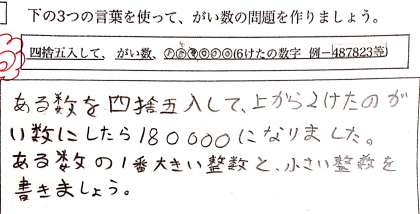 下の3つの言葉を使って、がい数の問題を作りましょう。
四捨五入して、がい数、㋐㋑⓪⓪⓪⓪(6けたの数字 例－487823等)
ある数を四捨五入して、上から2けたのが
い数にしたら180000になりました。
ある数の1番大きい整数と、小さい整数を
書きましょう。